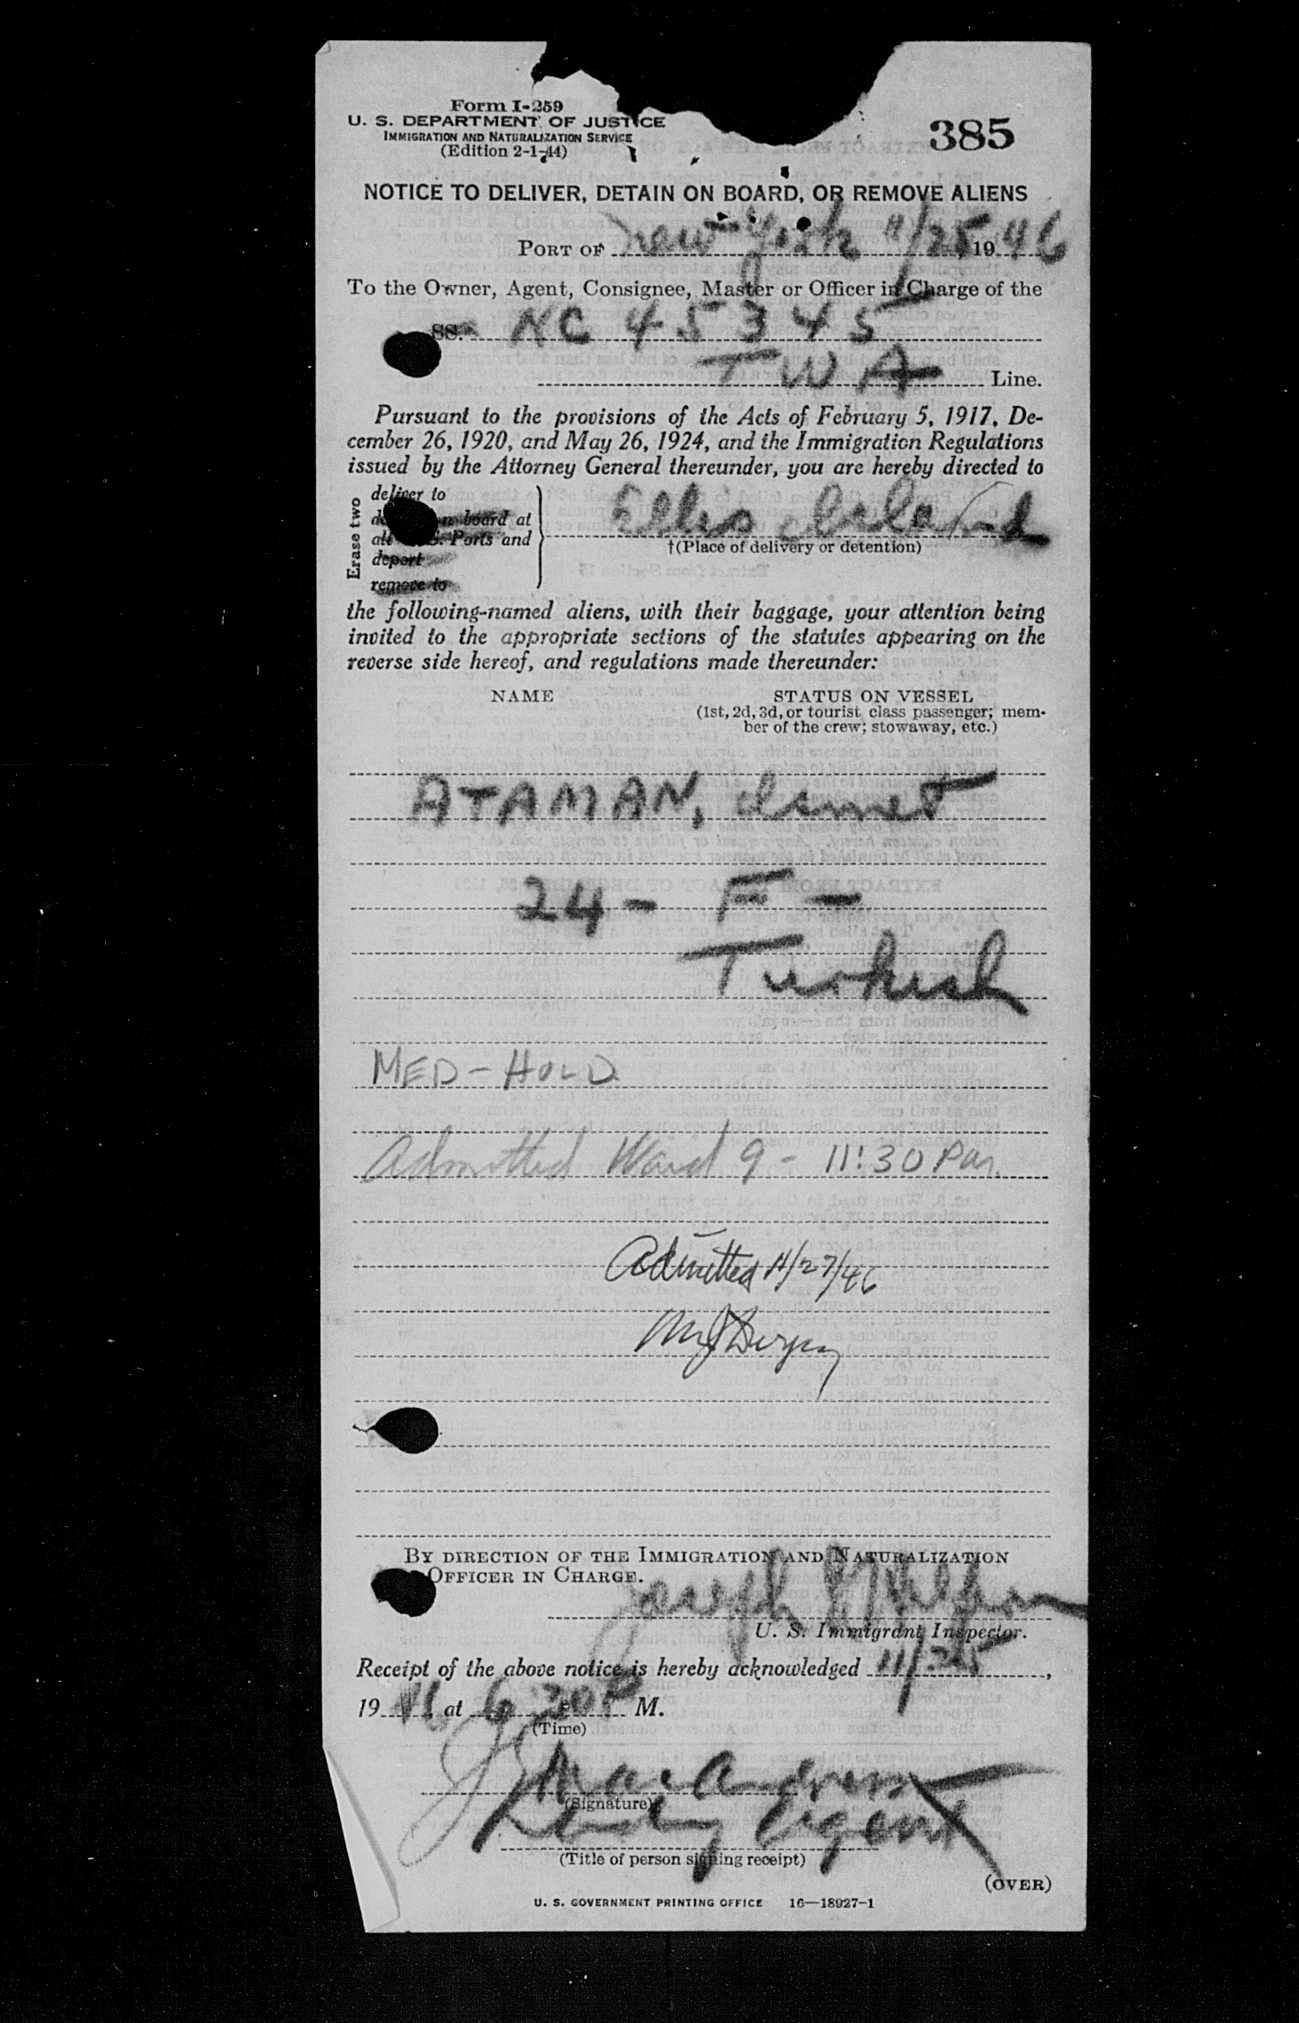 Form I-259
U. S. DEPARTMENT OF JUSTICE
IMMIGRATION AND NATURALIZATION SERVICE
(Edition 2-1-44)
385
NOTICE TO DELIVER, DETAIN ON BOARD, OR REMOVE ALIENS
PORT OF New York 11/25 19 46
To the Owner, Agent, Consignee, Master or Officer in Charge of the
SS. NC 45345
TWA Line.
Pursuant to the provisions of the Acts of February 5, 1917, De-
cember 26, 1920, and May 26, 1924, and the Immigration Regulations
issued by the Attorney General thereunder, you are hereby directed to
Erase two
deliver to
on board at
Ports and
deport
remove to
Ellis Island
†(Place of delivery or detention)
the following-named aliens, with their baggage, your attention being
invited to the appropriate sections of the statutes appearing on the
reverse side hereof, and regulations made thereunder:
NAME STATUS ON VESSEL
(1st, 2d, 3d, or tourist class passenger; mem-
ber of the crew; stowaway, etc.)
ATAMAN, Ismet
24 - F -
Turkish
MED-HOLD
Admitted Ward 9 - 11:30 Pm.
Admitted 11/27/46
BY DIRECTION OF THE IMMIGRATION AND NATURALIZATION
OFFICER IN CHARGE.
Joseph
U. S. Immigrant Inspector.
Receipt of the above notice is hereby acknowledged 11/25,
19 46 at 6 30 P M.
(Time)
(Signature)
Agent
(Title of person signing receipt)
(OVER)
U. S. GOVERNMENT PRINTING OFFICE 16—18927-1